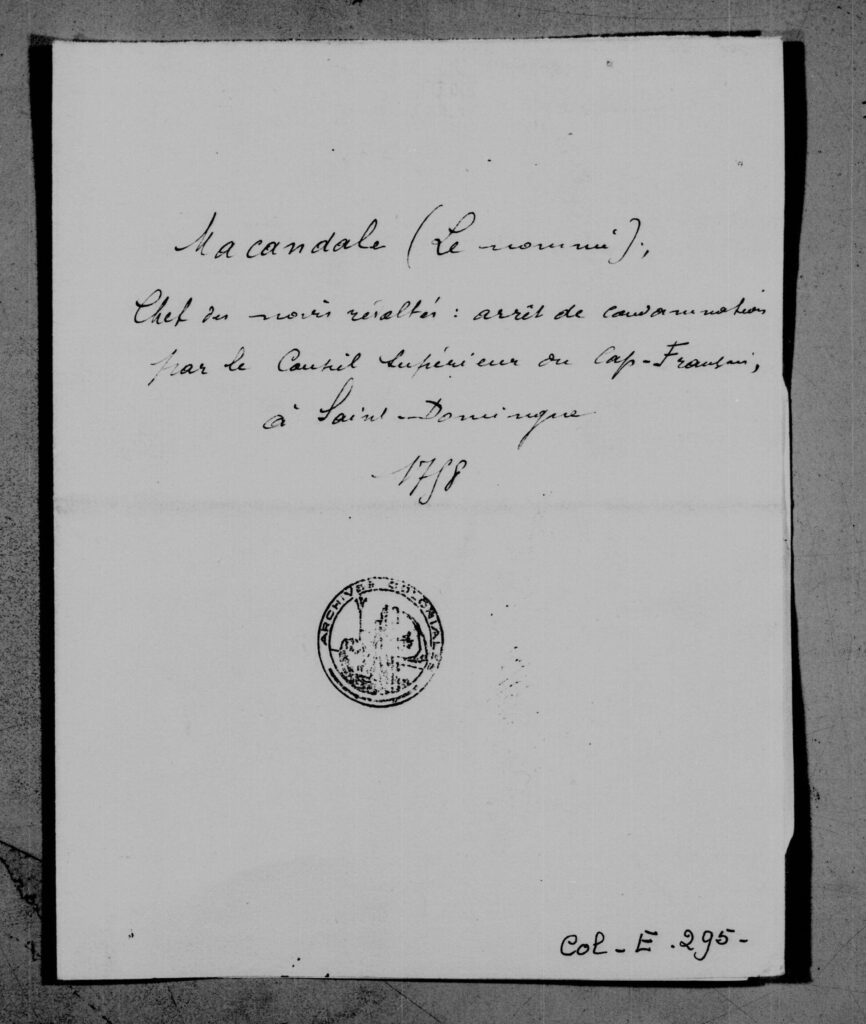 Macandale (Le nommé),
Chef des noirs révoltés : arrêt de condamnation
par le Conseil Supérieur du Cap-Français,
à Saint-Domingue
1758
ARCHIVES COLONIALES
Col - E . 295 -